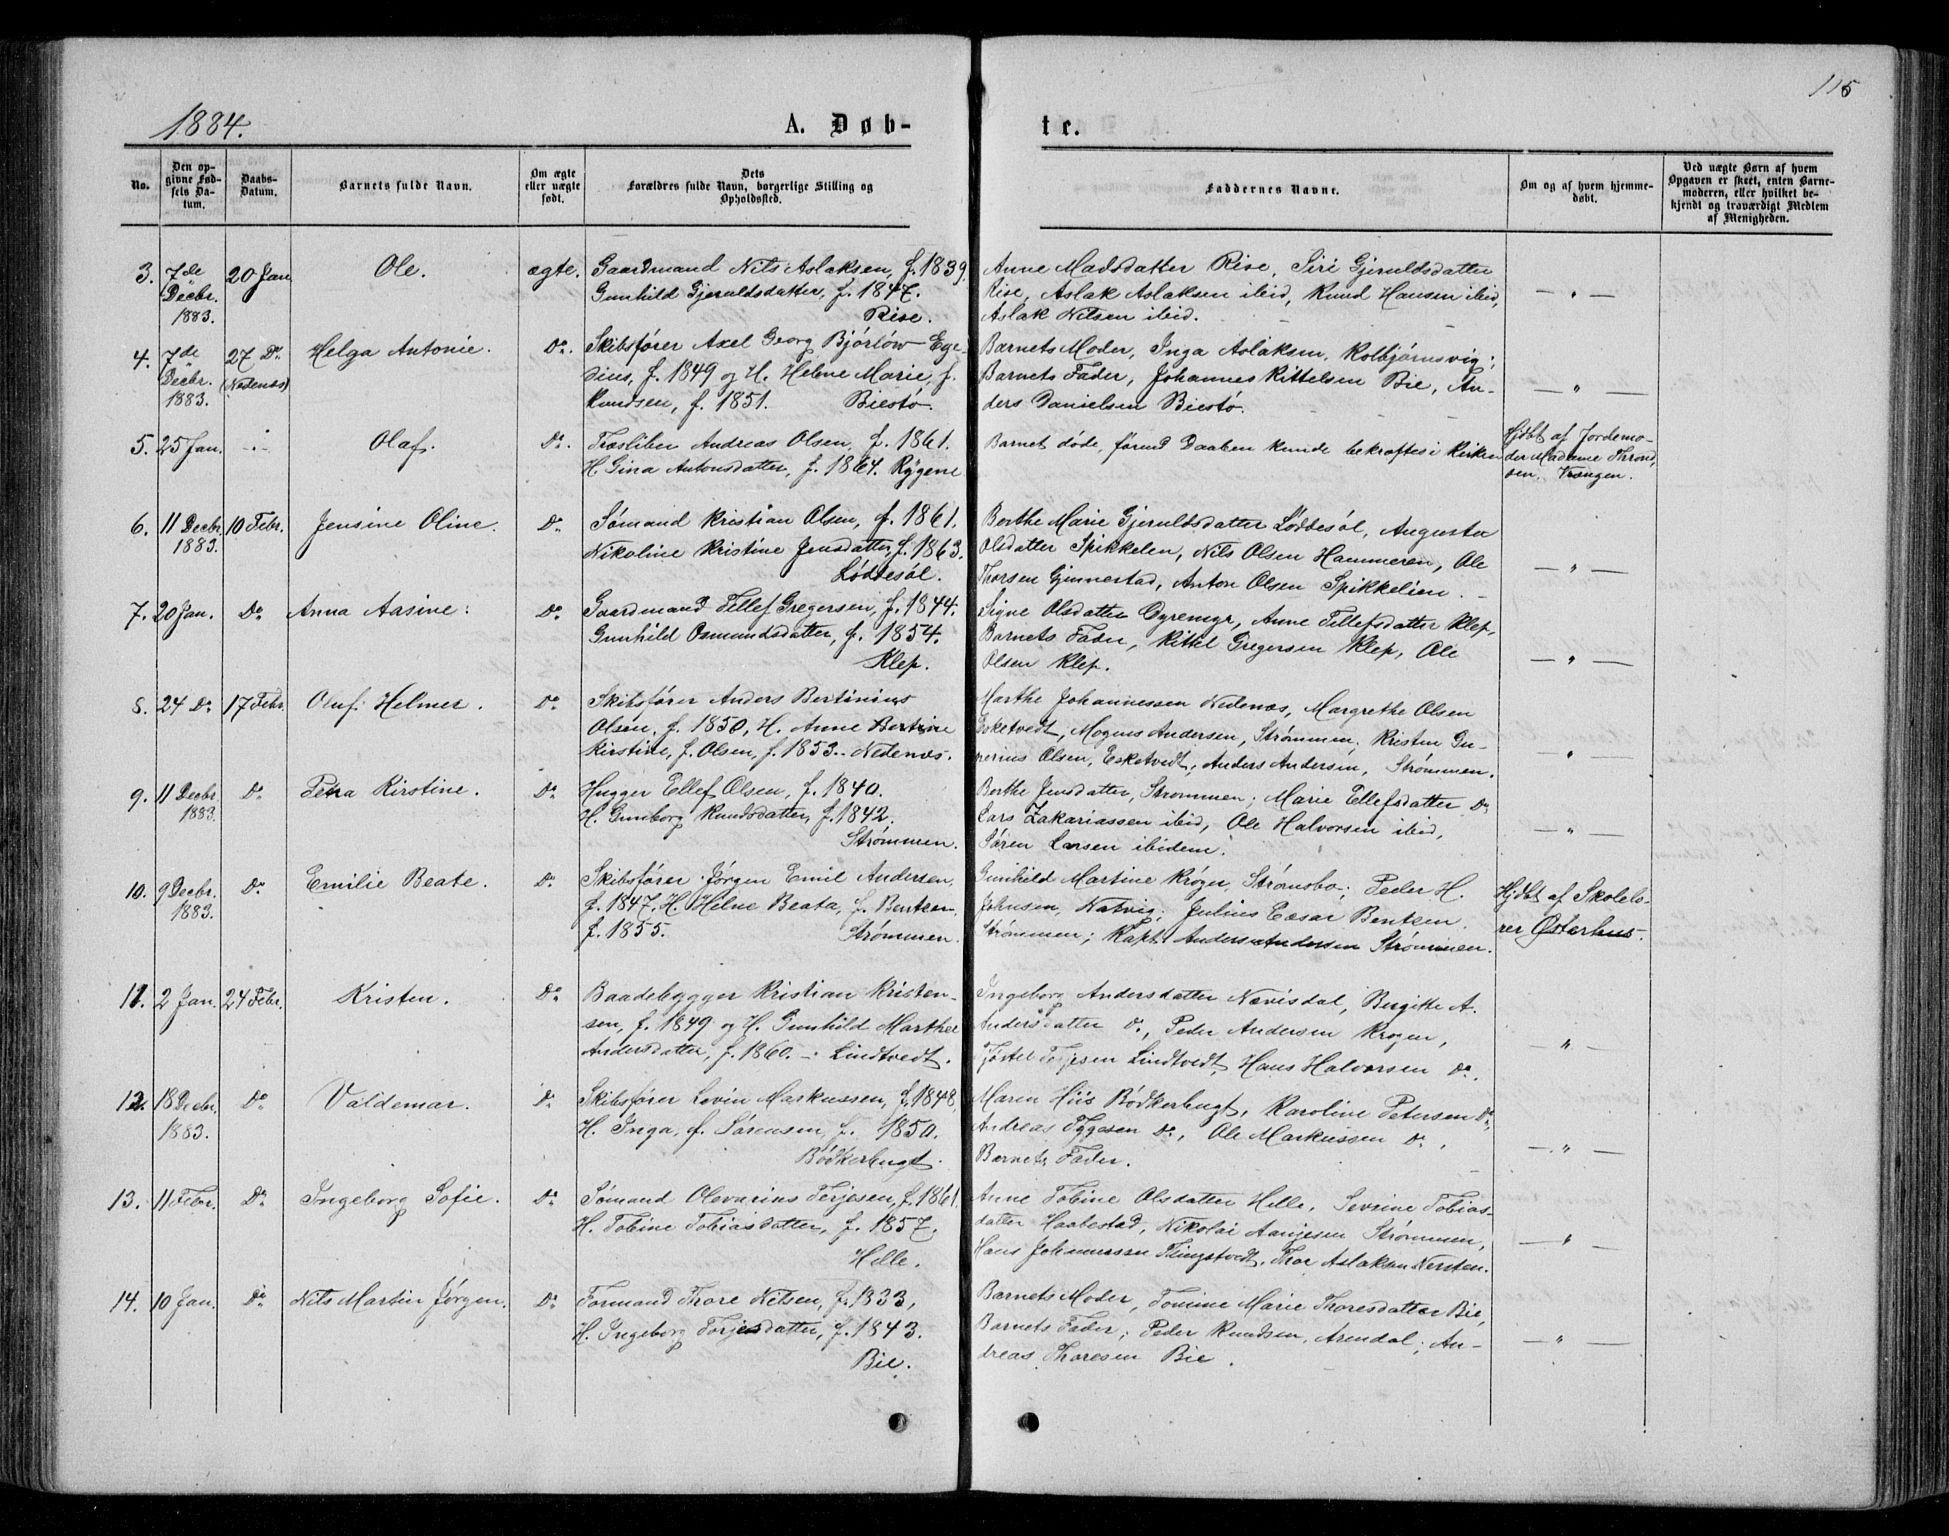 115
1884.
A. Døb-
te.
No.
Den op-
givne Fød-
sels Da-
tum.
Daabs-
Datum.
Barnets fulde Navn.
Om ægte
eller uægte
født.
Dets
Forældres fulde Navn, borgerlige Stilling og
Opholdssted.
Faddernes Navne.
Om og af hvem hjemme-
døbt.
Ved uægte Børn af hvem
Opgaven er skeet, enten Barne-
moderen, eller hvilket be-
kjendt og troværdigt Medlem
af Menigheden.
3. 7de Decbr. 1883. 20 Jan. Ole. ægte.
Gaardmand Nils Aslaksen, f. 1839.
Gunhild Gjeruldsdatter, f. 1847.
Rise.
Anne Madsdatter Rise, Siri Gjeruldsdatter
Rise, Aslak Aslaksen ibid, Knud Hansen ibid,
Aslak Nilsen ibid.
— " —
4. 7de Decbr. 1883. 27 Do (Nedenæs) Helga Antonie. Do.
Skibsfører Axel Georg Bjørlow Ege-
dius, f. 1849 og H. Helene Marie, f.
Knudsen, f. 1851. Biestø.
Barnets Moder, Inga Aslaksen, Kolbjørnsvig;
Barnets Fader, Johannes Kittelsen Bie, An-
ders Danielsen Biestø.
— " —
5. 25 Jan. -:- Olaf. Do.
Træsliber Andreas Olsen, f. 1861.
H. Gina Antonsdatter, f. 1864. Rygene
Barnet døde, førend Daaben kunde bekræftes i Kirken
Hjdbt af Jordemo-
der Madame Thrond-
sen, Vrengen.
6. 11 Decbr. 1883. 10 Febr. Jensine Oline. Do
Sømand Kristian Olsen, f. 1861.
Nikoline Kristine Jensdatter, f. 1863.
Løddesøl.
Berthe Marie Gjeruldsdatter Løddesøl, Augusta
Olsdatter Spikkelen, Nils Olsen Hammeren, Ole
Thorsen Gjennestad, Anton Olsen Spikkelien.
— " —
7. 20 Jan. Do Anna Aasine: Do
Gaardmand Tellef Gregersen, f. 1844.
Gunhild Osmundsdatter, f. 1854.
Klep.
Signe Olsdatter Oyremyr, Anne Tellefsdatter Klep,
Barnets Fader, Kittel Gregersen Klep, Ole
Olsen Klep.
— " —
8. 24 Do 17 Febr. Oluf Helmer. Do
Skibsfører Anders Bertinius
Olsen, f. 1850, H. Anne Bertine
Kirstine, f. Olsen, f. 1853. Nedenæs.
Marthe Johannessen Nedenæs, Margrethe Olsen
Esketvedt, Mogens Andersen, Strømmen; Kristen Gu-
nerius Olsen, Esketvedt, Anders Andersen, Strømmen.
"
9. 11 Decbr 1883. Do Petra Kirstine. Do
Hugger Ellef Olsen, f. 1840.
H. Gunborg Knudsdatter, f. 1842.
Strømmen.
Berthe Jensdatter, Strømmen; Marie Ellefsdatter Do
Lars Zakariassen ibid, Ole Halvorsen ibid,
Søren Larsen ibidem.
— " —
10. 9 Decbr. 1883. Do Emilie Beate. Do
Skibsfører Jørgen Emil Andersen,
f. 1847. H. Helene Beata, f. Bentzen,
f. 1855. Strømmen.
Gunhild Martine Krøger, Strømsbo; Peder H.
Johnsen, Natvig; Julius Cæsar Bentzen
Strømmen; Kapt. Anders Andersen Strømmen.
Hjdbt af Skolelæ-
rer Østerhus.
11. 2 Jan. 24 Febr. Kristen. Do
Baadebygger Kristian Kristen-
sen, f. 1849 og H. Gunhild Marthea
Andersdatter, f. 1860. -: Lindtvedt.
Ingeborg Andersdatter Nævisdal, Bergitte A.
Andersdatter do, Peder Andersen Krogen,
Terjesen Lindtvedt, Hans Halvorsen Do.
— " —
12. 18 Decbr. 1883. Do Valdemar. Do
Skibsfører Lovin Markussen, f. 1848,
H. Inga, f. Sørensen, f. 1850.
Bødkerbugt.
Maren Hiis Bødkerbugt, Karoline Petersen Do,
Andreas Iggesen Do, Ole Markussen Do,
Barnets Fader.
— " —
13. 11 Febr. Do Ingeborg Sofie. Do
Sømand Olevarius Terjesen, f. 1861.
H. Tobine Tobiasdatter, f. 1857.
Helle.
Anne Tobine Olsdatter Helle, Sevrine Tobias-
datter Haabestad, Nikolai Aanjesen Strømmen,
Hans Johannessen Tingstvedt, Thor Aslaksen Nersten.
— " —
14. 10 Jan. Do Nils Martin Jørgen. Do
Formand Thore Nilsen, f. 1833,
H. Ingeborg Torjesdatter, f. 1843.
Bie.
Barnets Moder, Tomine Marie Thoresdatter Bie,
Barnets Fader; Peder Knudsen, Arendal; An-
dreas Thoresen Bie.
— " —